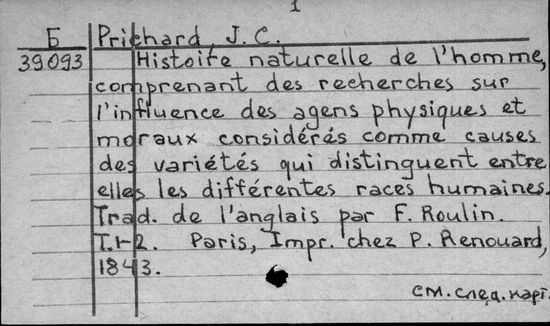 1
Б Prichard, J. C.
39093 Histoire naturelle de l'homme,
comprenant des recherches sur
l'influence des agens physiques et
moraux considérés comme causes
des variétés qui distinguent entre
elles les différentes races humaines.
Trad. de l'anglais par F. Roulin.
T.1-2. Paris, Impr. chez P. Renouard,
1843.
см. след. карт.